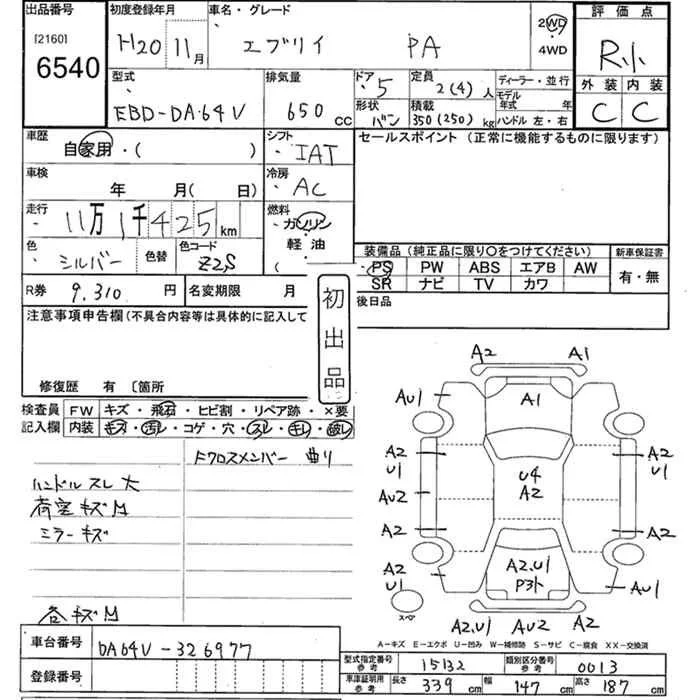 出品番号 初度登録年月 車名・グレード 評価点
[2160] 6540 H20 11月 エブリイ PA 2WD 4WD R小
型式 排気量 ドア 定員 ディーラー・並行 外装 内装
EBD-DA64V 650 CC 5 2(4)人 モデル年式 年 C C
形状 バン 積載 350(250)kg ハンドル 左・右
車歴 自家用・( ) シフト IAT セールスポイント (正常に機能するものに限ります)
車検 年 月( 日) 冷房 AC
走行 11万1千425km 燃料 ガソリン 軽油 ( 
色 シルバー 色替 色コード Z2S
装備品 (純正品に限り○をつけてください) 新車保証書
PS PW ABS エアB AW 有・無
SR ナビ TV カワ
R券 9,310 円 名変期限 月 後日品
初出品
注意事項申告欄(不具合内容等は具体的に記入して
修復歴 有 〔箇所
検査員 FW キズ・飛石・ヒビ割・リペア跡・×要
記入欄 内装 キズ・汚レ・コゲ・穴・スレ・キレ・破レ
Fクロスメンバー 曲り
ハンドル スレ 大
荷室 キズM
ミラー キズ
各キズM
A2 A1
AU1 A1
A2 U1 A2 U1
U4 A2
AU2
A2 A2
A2 U1 A2.U1 Pネト AU1
スペア
A2.U1 AU2 A2
A-キズ E-エクボ U-凹み W-補修跡 S-サビ C-腐食 XX-交換済
車台番号 DA64V-326977
登録番号
型式指定番号 参考 15132 類別区分番号 参考 0013
車庫証明用 参考 長さ 339 cm 幅 147 cm 高さ 187 cm